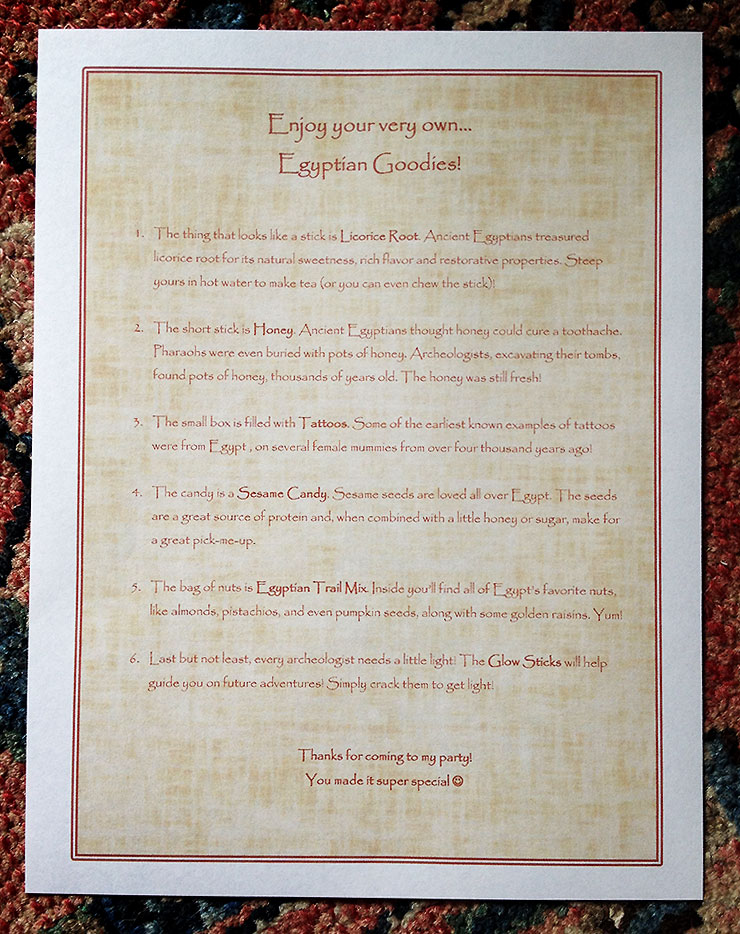 Enjoy your very own...
Egyptian Goodies!
1. The thing that looks like a stick is Licorice Root. Ancient Egyptians treasured
licorice root for its natural sweetness, rich flavor and restorative properties. Steep
yours in hot water to make tea (or you can even chew the stick)!
2. The short stick is Honey. Ancient Egyptians thought honey could cure a toothache.
Pharaohs were even buried with pots of honey. Archeologists, excavating their tombs,
found pots of honey, thousands of years old. The honey was still fresh!
3. The small box is filled with Tattoos. Some of the earliest known examples of tattoos
were from Egypt , on several female mummies from over four thousand years ago!
4. The candy is a Sesame Candy. Sesame seeds are loved all over Egypt. The seeds
are a great source of protein and, when combined with a little honey or sugar, make for
a great pick-me-up.
5. The bag of nuts is Egyptian Trail Mix. Inside you'll find all of Egypt's favorite nuts,
like almonds, pistachios, and even pumpkin seeds, along with some golden raisins. Yum!
6. Last but not least, every archeologist needs a little light! The Glow Sticks will help
guide you on future adventures! Simply crack them to get light!
Thanks for coming to my party!
You made it super special ☺